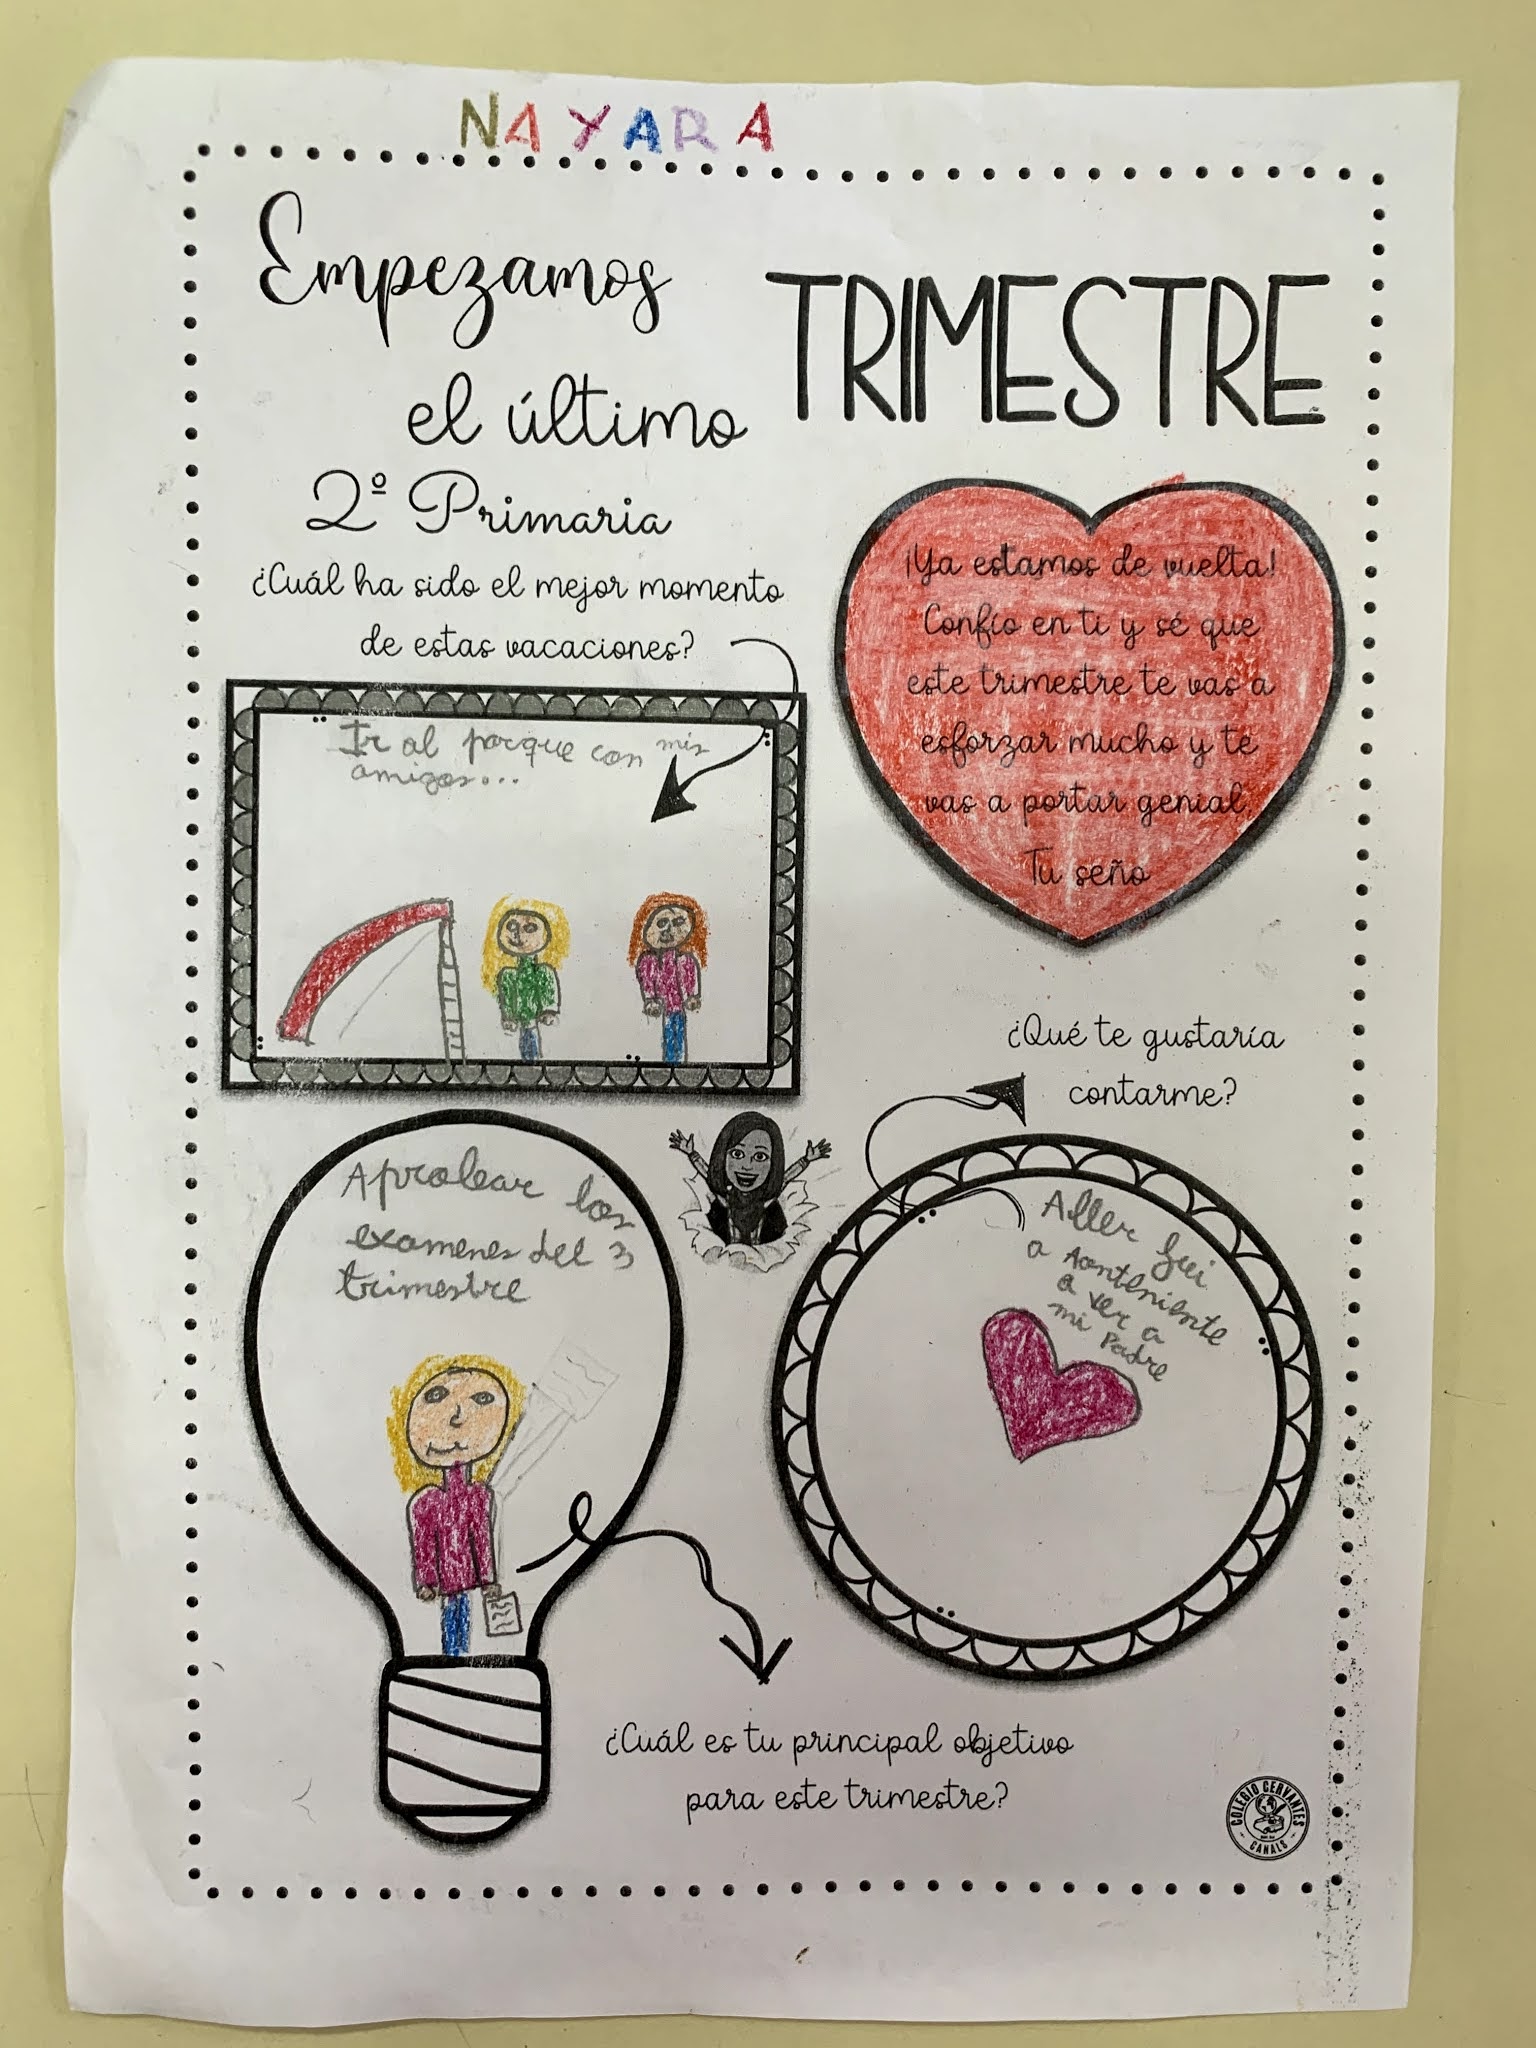 NAYARA
Empezamos
el último
TRIMESTRE
2º Primaria
¿Cuál ha sido el mejor momento
de estas vacaciones?
Ir al parque con mis
amigos...
¡Ya estamos de vuelta!
Confío en ti y sé que
este trimestre te vas a
esforzar mucho y te
vas a portar genial.
Tu seño
¿Qué te gustaría
contarme?
Aller fui
a Aonteniente
a ver a
mi Padre
Aprolear los
examenes del 3
trimestre
¿Cuál es tu principal objetivo
para este trimestre?
COLEGIO CERVANTES
CANALS